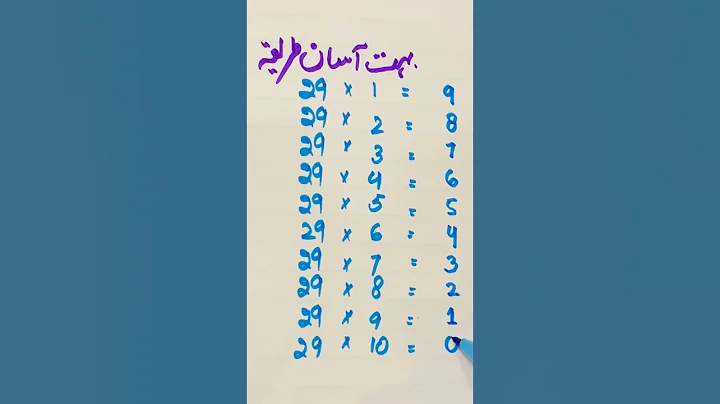 بہت آسان طریقہ
29 × 1 = 9
29 × 2 = 8
29 × 3 = 7
29 × 4 = 6
29 × 5 = 5
29 × 6 = 4
29 × 7 = 3
29 × 8 = 2
29 × 9 = 1
29 × 10 = 0